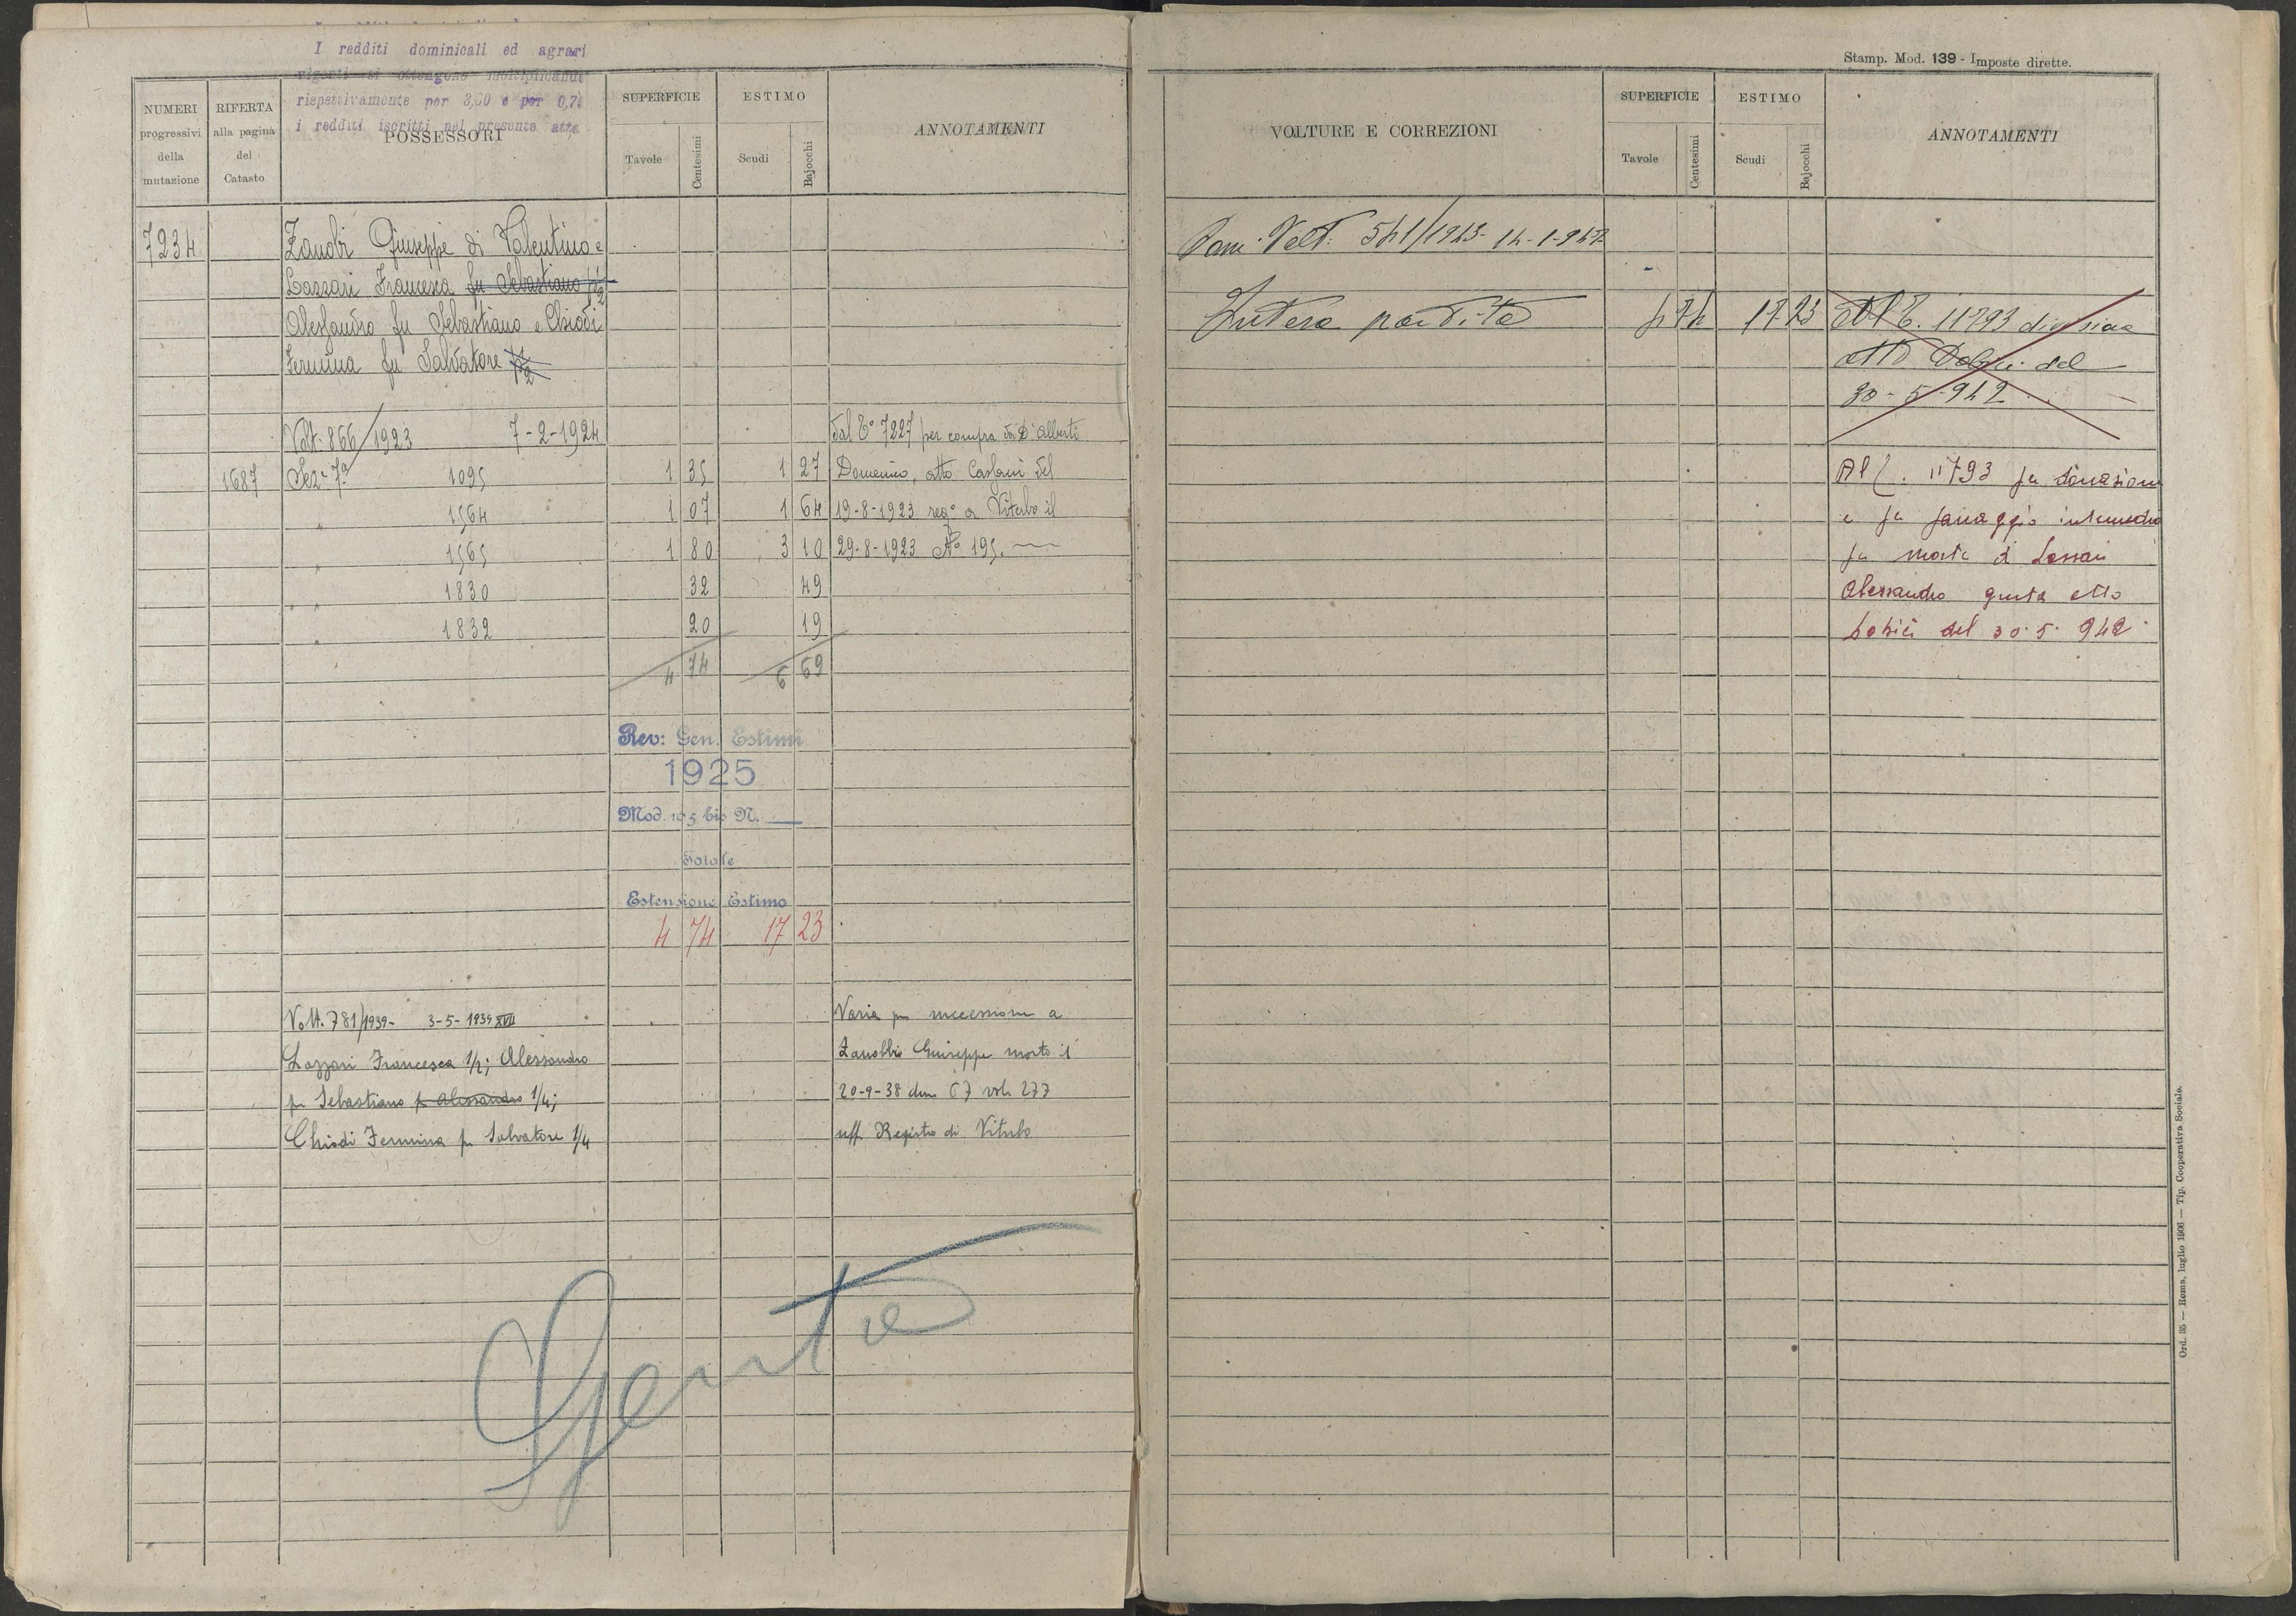 I redditi dominicali ed agrari
vigenti si ottengono moltiplicando
rispettivamente per 3,60 e per 0,7
i redditi iscritti nel presente atto
NUMERI
progressivi
della
mutazione
RIFERTA
alla pagina
del
Catasto
POSSESSORI
SUPERFICIE
Tavole
Centesimi
ESTIMO
Scudi
Bajocchi
ANNOTAMENTI
7234
Zanobi Giuseppe di Valentino e
Lazzari Francesca fu Sebastiano 1/2
Alessandro fu Sebastiano e Chiodi
Fermina fu Salvatore 1/2
Volt. 866/1923 7-2-1924
dal C° 7227 per compra da D'Alberto
1687 Sez. 7a 1095 1 35 1 27 Domenico, atto del
" 1564 1 07 1 64 19-8-1923 reg° a Viterbo il
" 1565 1 80 3 10 29-8-1923 N° 195.
" 1830 32 49
" 1832 20 19
4 74 6 69
Rev: Gen. Estimi
1925
Mod. 105 bis N.
Totale
Estensione Estimo
4 74 17 23
Volt. 781/1939- 3-5-1939 XVII
Varia per successione a
Lazzari Francesca 1/2; Alessandro
Zanobbi Giuseppe morto il
fu Sebastiano fu Alessandro 1/4;
20-9-38 den 67 vol. 277
Chiodi Fermina fu Salvatore 1/4
uff. Registro di Viterbo
Stamp. Mod. 139 - Imposte dirette.
VOLTURE E CORREZIONI
SUPERFICIE
Tavole
Centesimi
ESTIMO
Scudi
Bajocchi
ANNOTAMENTI
Volt. 541/1943- 14-1-947
Intera partita 4 74 17 23 Al C. 11793 divisione
atto del
30-5-942
Al C. 11793 per donazione
e per passaggio intermedio
per morte di Lazzari
Alessandro giusta atto
del 30.5.942
Ord. 35 — Roma, luglio 1906 — Tip. Cooperativa Sociale.